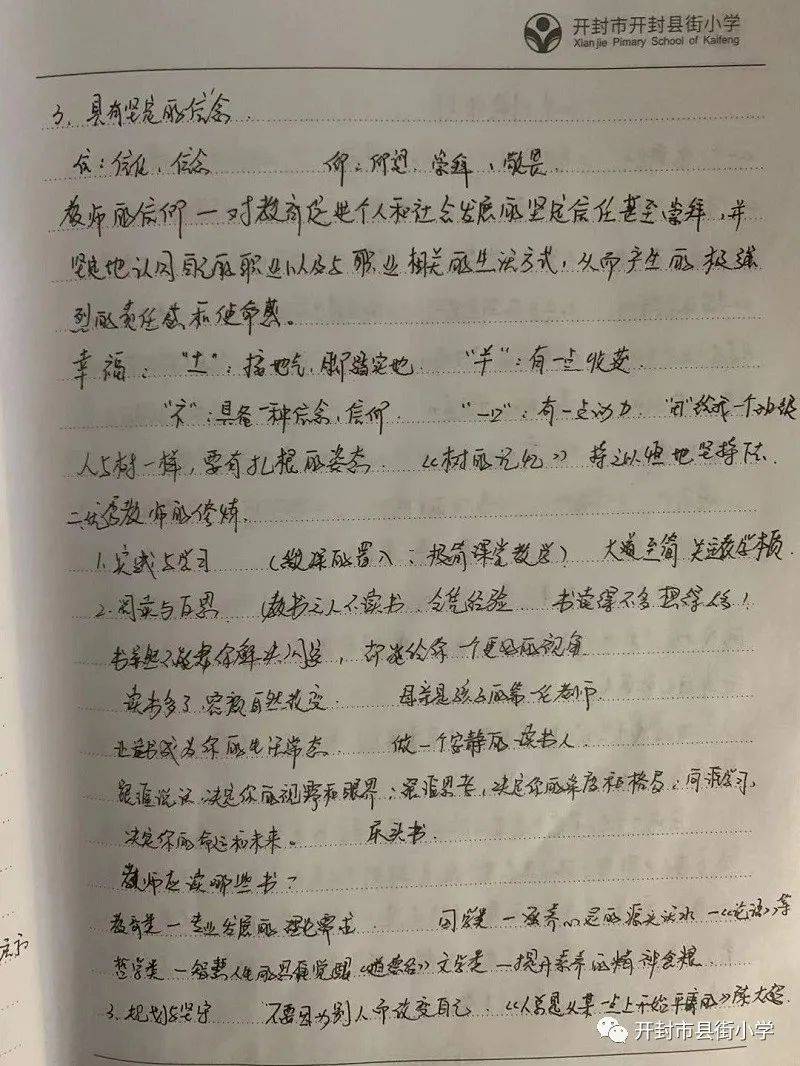 开封市开封县街小学
Xianjie Pimary School of Kaifeng
3、具有坚定的信念.
信:信任、信念 仰:仰望、崇拜、敬畏.
教师的信仰一对教育促进个人和社会发展的坚定信任甚至崇拜,并
坚定地认同自己的职业以及与职业相关的生活方式,从而产生的极强
烈的责任感和使命感。
幸福: "土":接地气,脚踏实地 "羊":有一点收获.
"礻":具备一种信念,信仰. "一口":有一点动力. "田"给我一个
人与树一样,要有扎根的姿态. 《树的记忆》 持之以恒地坚持下去.
二、优秀教师的修炼.
1.实践与学习 (教课的置入:极简课堂教学) 大道至简 关注教学本质.
2.阅读与思 (教书之人不读书,全凭经验 书读得不多想得多!
书虽然不能帮你解决问题,却能给你一个更好的视角
读书多了,容颜自然改变. 母亲是孩子的第一任老师.
让读书成为你的生活常态. 做一个安静的读书人.
跟谁说话,决定你的视野和眼界;跟谁思考,决定你的角度和格局;同谁学习,
决定你的命运和未来。 床头书.
教师应读哪些书?
教育类一专业发展的理论 国学类一涵养心灵的源头活水一《论语》等
哲学类一智慧人生的思有觉醒《道德经》文学类一提升素养的精神食粮.
3.规划与坚守 不要因为别人而改变自己. 《人总是从某一点上开始平庸的》陈大
示
开封市县街小学